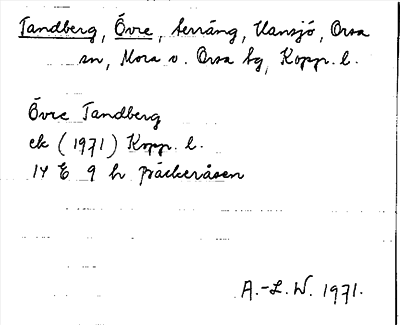 Tandberg, Övre, terräng, Hansjö, Orsa
sn, Mora o. Orsa tg, Kopp. l.
Övre Tandberg
ek (1971) Kopp. l.
14 E 9 h Näckeråsen
A.-L.W. 1971.